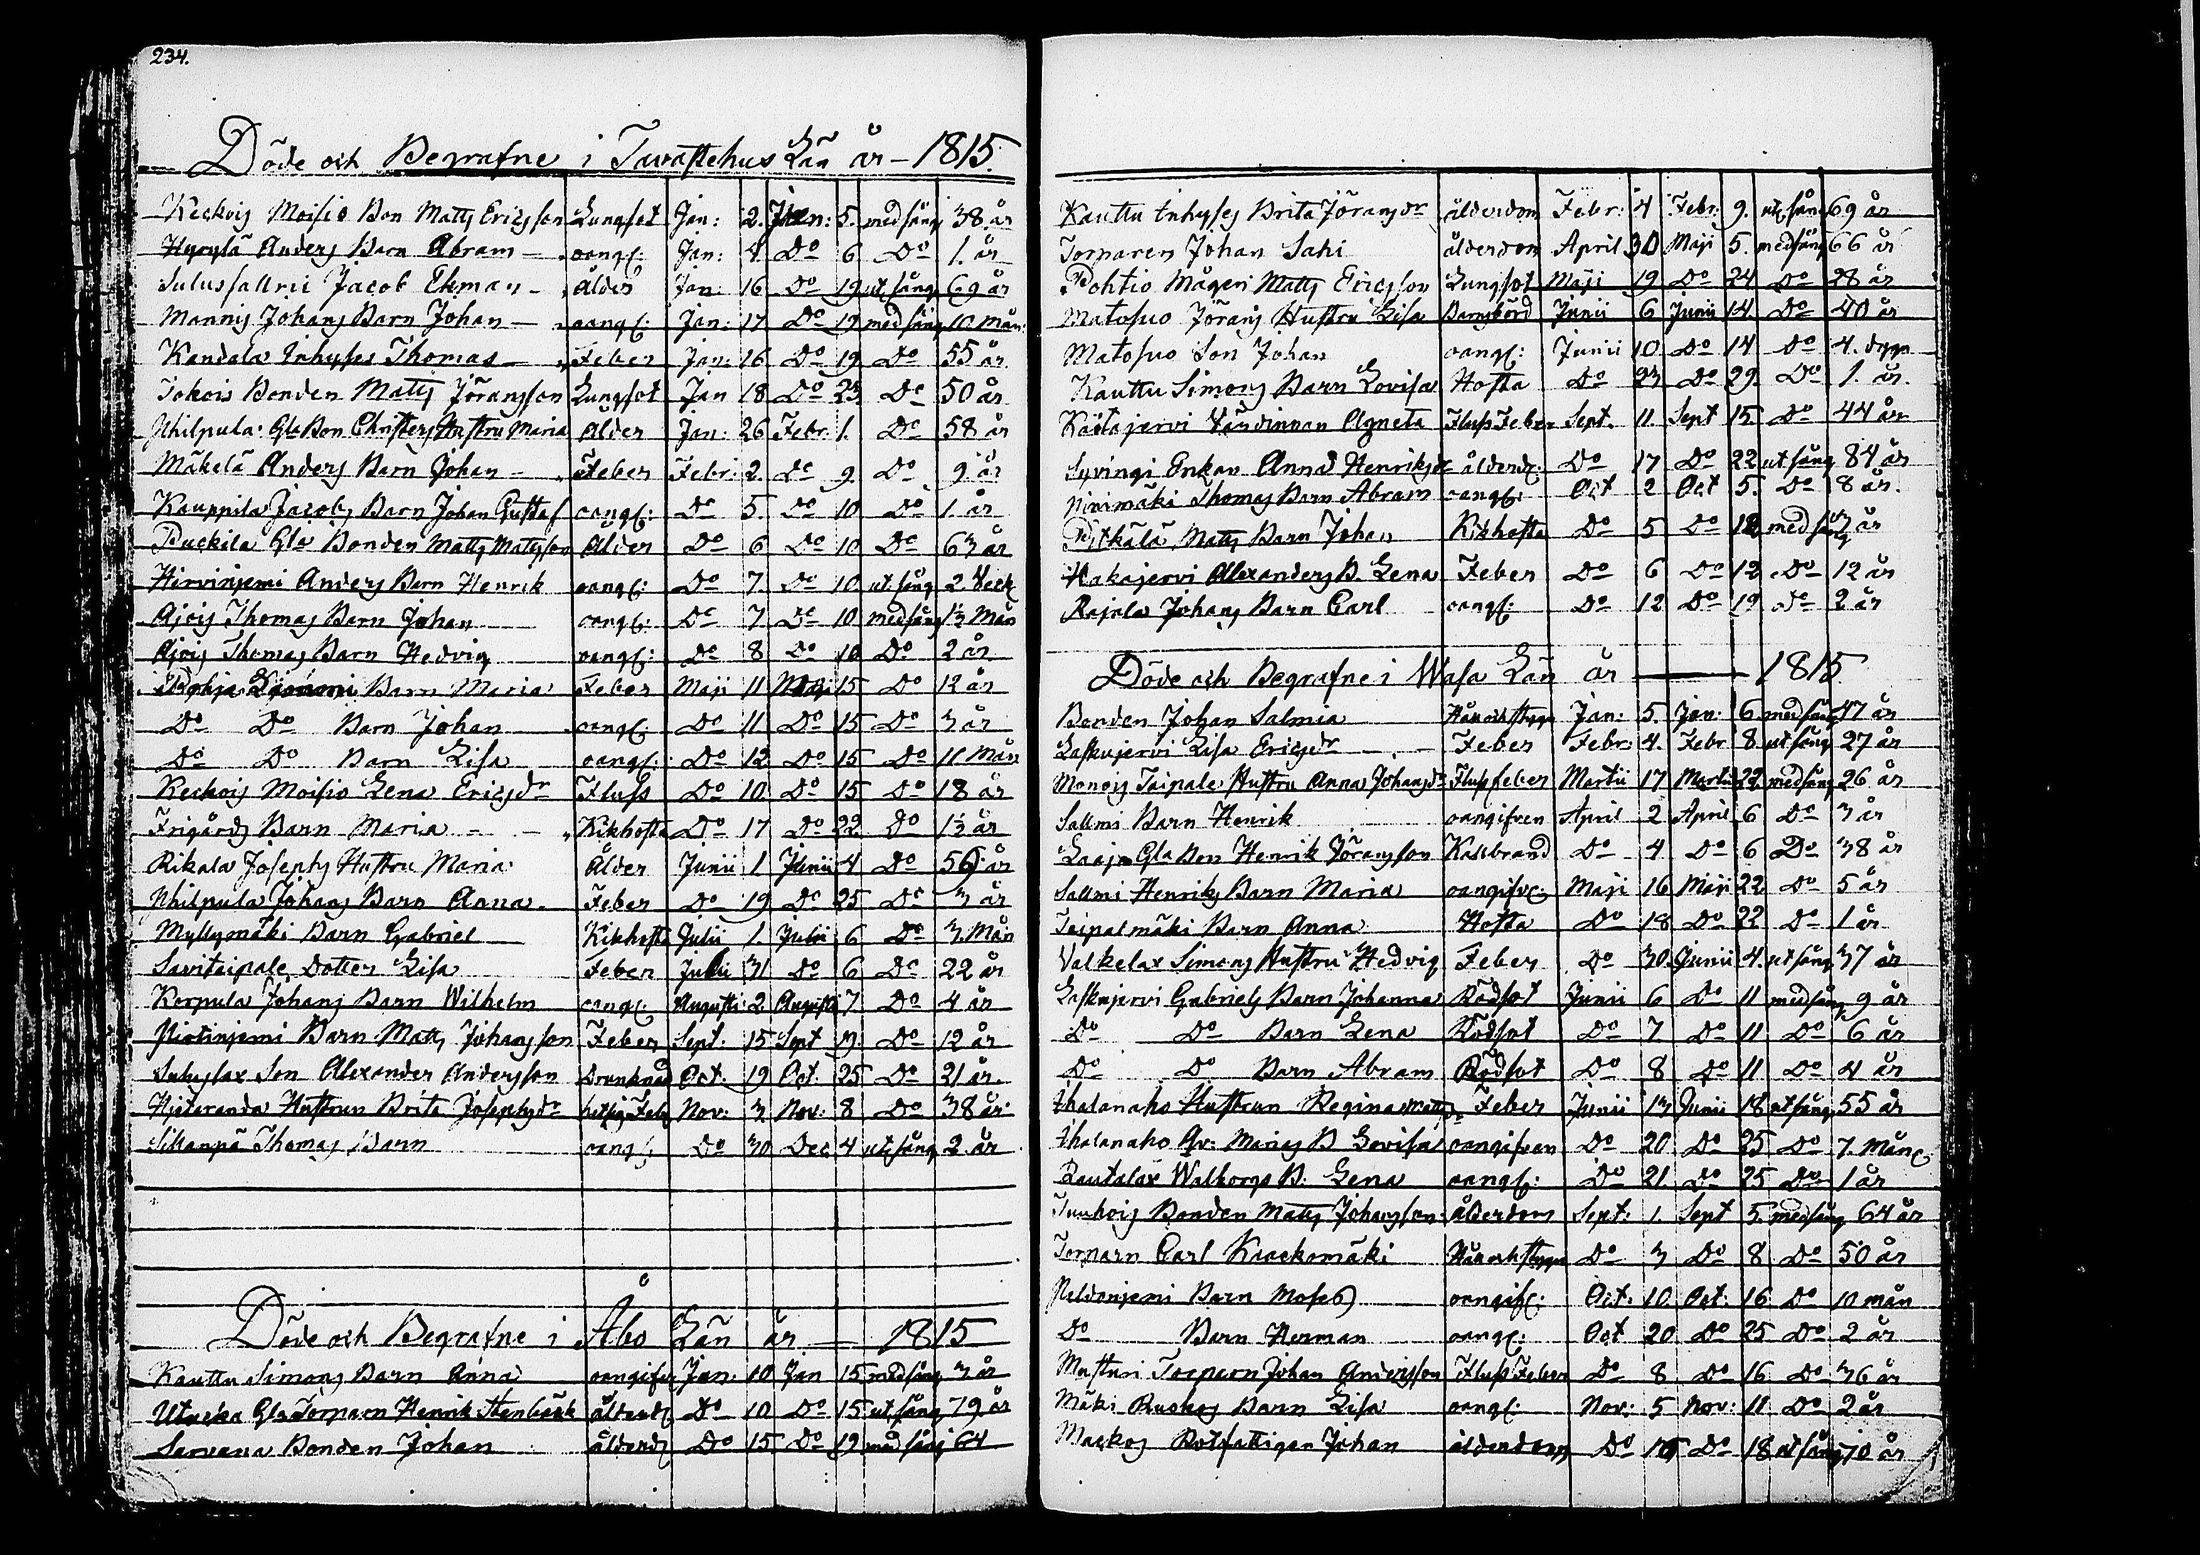 234.
Döde och Begrafne i Tavastehus Län år - 1815.
Keckois Moisio Bon Matts Ericsson Lungsot Jan: 2. Jan: 5. med sång 38. år
Anders Barn Abram oangf: Jan: 4 Do 6 Do 1. år
Jacob Ekman Ålder Jan: 16 Do 19 ut. sång 69 år
Mannis Johans Barn Johan oangf: Jan: 17 Do 19 med sång 10 mån:
Kandala Inhyses Thomas Feber Jan: 16 Do 19 Do 55 år
Jokois Bonden Matts Jöransson Lungsot Jan 18 Do 23 Do 50 år
Nhilpula Gla Bon Christers Hustru Maria Ålder Jan: 26 Febr. 1. Do 58 år
Mäkelä Anders Barn Johan Feber Febr: 2. Do 9 Do 9 år
Kauppila Jacobs Barn Johan Gustaf oangf: Do 5 Do 10 Do 1. år
Puckila Gla Bonden Matts Mattsson Ålder Do 6 Do 10 Do 63 år
Hirvinjemi Anders Barn Henrik oangf: Do 7. Do 10. ut. sång 2. Veck
Ajois Thomas Barn Johan oangf: Do 7 Do 10 med sång 1½ Mån
Ajois Thomas Barn Hedvig oangf: Do 8 Do 10 Do 2 år
Barn Maria Feber Maji 11 Maji 15 Do 12 år
Do Do Barn Johan oangf: Do 11 Do 15 Do 3 år
Do Do Barn Lisa oangf: Do 12 Do 15 Do 11 Mån
Keckois Moisio Lena Ericsdr Fluss Do 10 Do 15 Do 18 år
Frigårds Barn Maria Kikhosta Do 17 Do 22 Do 1½ år
Rikala Josephs Hustru Maria Ålder Junii 1 Junii 4 Do 56 år
Nhilpula Johans Barn Anna Feber Do 19 Do 25 Do 3 år
Myllymäki Barn Gabriel Kikhosta Julii 1. Julii 6 Do 3. Mån
Savitaipale Dotter Lisa Feber 31 Do 6 Do 22 år
Korpula Johans Barn Wilhelm oangf: Augusti 2 Augusti 7. Do 4 år
Niotinjemi Barn Matts Johansson Feber Sept. 15 Sept 19. Do 12 år
Son Alexander Andersson Drunknad Oct. 19 Oct. 25 Do 21 år.
Hjeteranda Hustrun Brita Josephsdr Nov: 3 Nov: 8 Do 38 år
Sillanpä Thomas Barn oangf: Do 30 Dec 4 ut. sång 2 år
Döde och Begrafne i Åbo Län år 1815
Kauttu Simons Barn Anna oangif Jan: 10 Jan 15 med sång 3 år
Gla Torparn Henrik Stenbäck ålderd Do 10 Do 15 ut. sång 79 år
Sarvana Bonden Johan ålderd Do 15 Do 19 med sång 64
Kauttu Inhyses Brita Jöransdr ålderdom Febr: 4 Febr: 9. ut. sång 69 år
Torparen Johan Sahi ålderdom April 30 Maji 5. med sång 66 år
Pohtio Mågen Matts Ericsson Lungsot Maji 19 Do 24 Do 28 år
Matosuo Jörans Hustru Lisa Barnsbörd Junii 6 Junii 14. Do 40 år
Matosuo Son Johan oangf: Junii 10 Do 14 Do 4. dygn
Kauttu Simons Barn Lovisa Hosta Do 23 Do 29. Do 1. år.
Värdinnan Agneta Fluss Feber Sept. 11. Sept 15. Do 44 år
Syvingi Enkan Anna Henriksdr ålderd: Do 17 Do 22 ut sång 84 år
Thomas Barn Abram oangf: Oct 2 Oct 5. Do 8 år.
Pitkälä Matts Barn Johan Kikhosta Do 5 Do 12 med sång 3 år
Hakajervi Alexanders B. Lena Feber Do 6 Do 12 Do 12 år
Rajala Johans Barn Carl oangf: Do 12 Do 19 Do 2 år
Döde och Begrafne i Wasa Län år 1815
Bonden Johan Salmia Håll och stygn Jan: 5. Jan: 6 med sång 47 år
Laskujervi Lisa Ericsdr Feber Febr: 4. Febr 8 ut sång 27 år
Monois Taipale Hustru Anna Johansdr Flussfeber Martii 17 Martii 22 med sång 26 år
Sallmi Barn Henrik oangifven April 2 April 6 Do 3 år
Gla Bon Henrik Jöransson Kallbrand Do 4 Do 6 Do 38 år
Sallmi Henriks Barn Maria oangifve: Maji 16 Maji 22 Do 5 år
Taipalmäki Barn Anna Hosta Do 18 Do 22 Do 1 år
Valkelax Simons Hustru Hedvig Feber Do 30. Junii 4. ut sång 37 år
Laskujervi Gabriels Barn Johanna Rödsot Junii 6 Do 11 med sång 9 år
Do Do Barn Lena Rödsot Do 7 Do 11 Do 6 år
Do Do Barn Abram Rödsot Do 8 Do 11 Do 4 år
Ihalanaho Hustrun Regina Feber Junii 13 Junii 18 ut sång 55 år
Ihalanaho Qv: Marias B Lovisa oangifven Do 20 Do 25 Do 7. Mån
Rautalax Walborgs B. Lena oangf: Do 21. Do 25 Do 1 år
Tuukois Bonden Matts Johansson ålderdom Sept: 1. Sept 5. med sång 64 år
Torparn Carl Kraackomäki Håll och stygn Do 3 Do 8 Do 50 år
Peldonjemi Barn Moses oangif: Oct. 10 Oct. 16 Do 10 mån
Do Barn Herman oangf: Oct 20 Do 25 Do 2 år
Torparn Johan Andersson Fluss Feber Do 8 Do 16 Do 36 år
Mäki Barn Lisa oangf: Nov: 5 Nov: 11 Do 2 år
Johan ålderdom Do Do 18 ut sång 70 år